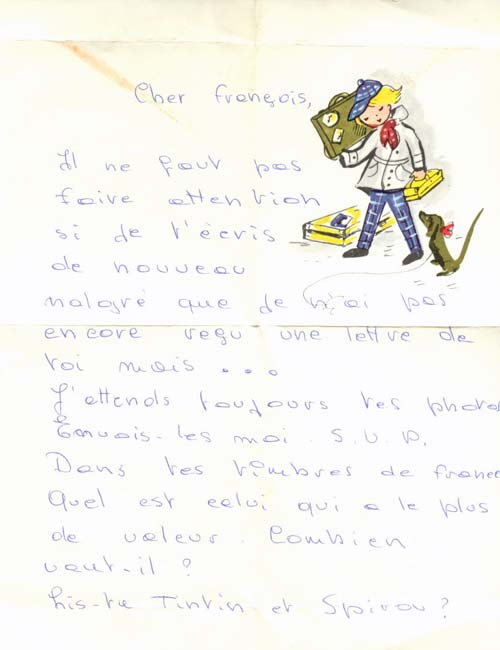 Cher François,
Il ne faut pas
faire attention
si je t'écris
de nouveau
malgré que je n'ai pas
encore reçu une lettre de
toi mais ...
J'attends toujours tes photos
Envois-les moi. S.V.P.
Dans tes timbres de france
Quel est celui qui a le plus
de valeur. Combien
vaut-il ?
Lis-tu Tintin et Spirou ?